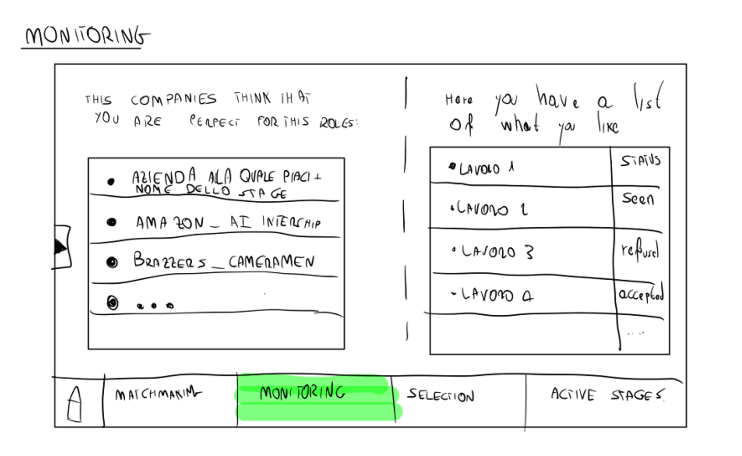 MONITORING
THIS COMPANIES THINK THAT
YOU ARE PERFECT FOR THIS ROLES:
• AZIENDA ALA QUALE PIACI +
NOME DELLO STAGE
• AMAZON_ AI INTERSHIP
• BRAZZERS_ CAMERAMEN
• ...
Here you have a list
of what you like
• LAVORO 1 STATUS
• LAVORO 2 Seen
• LAVORO 3 refused
- LAVORO 4 accepted
....
MATCHMAKING MONITORING SELECTION ACTIVE STAGES